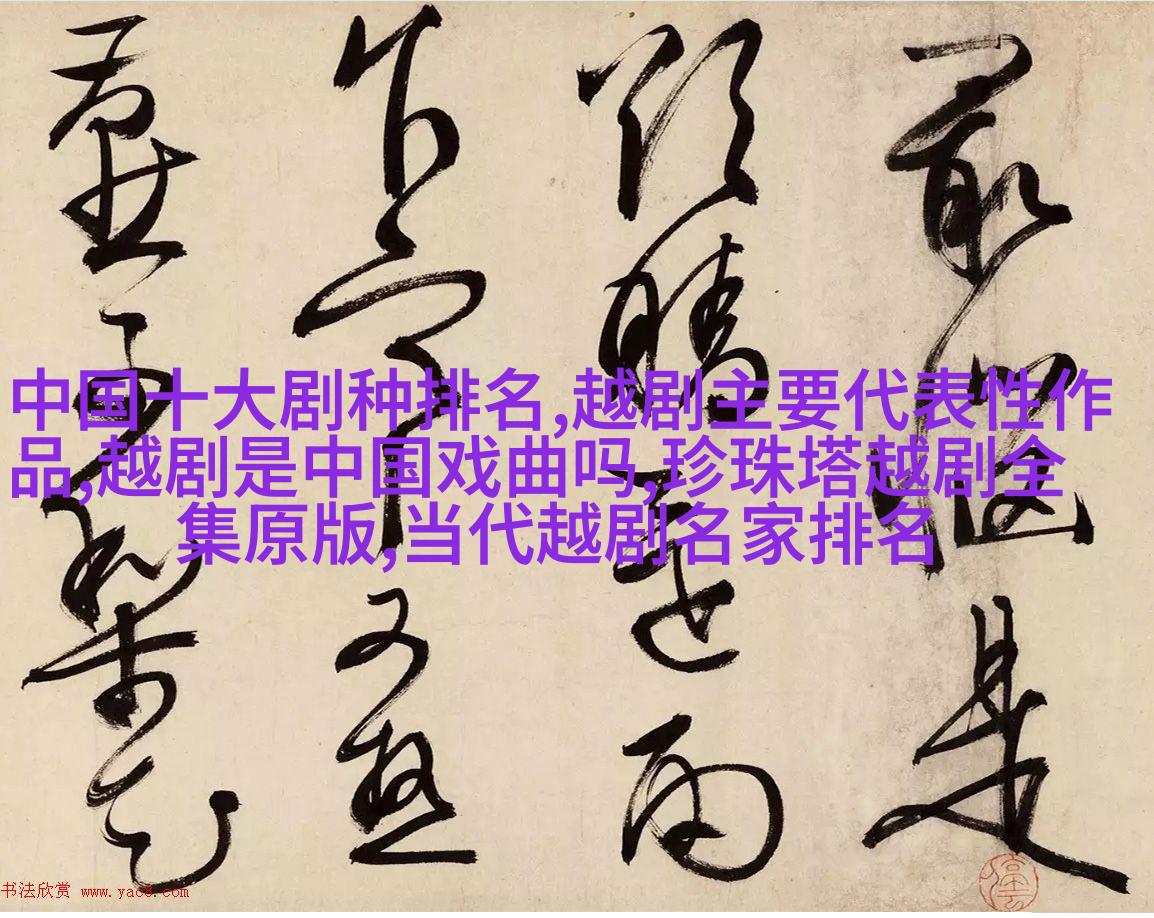 最惱是
晴還雨
乍寒又熱
燕子梨花
中国十大剧种排名,越剧主要代表性作
品,越剧是中国戏曲吗,珍珠塔越剧全
集原版,当代越剧名家排名
书法欣赏 www.yac8.com